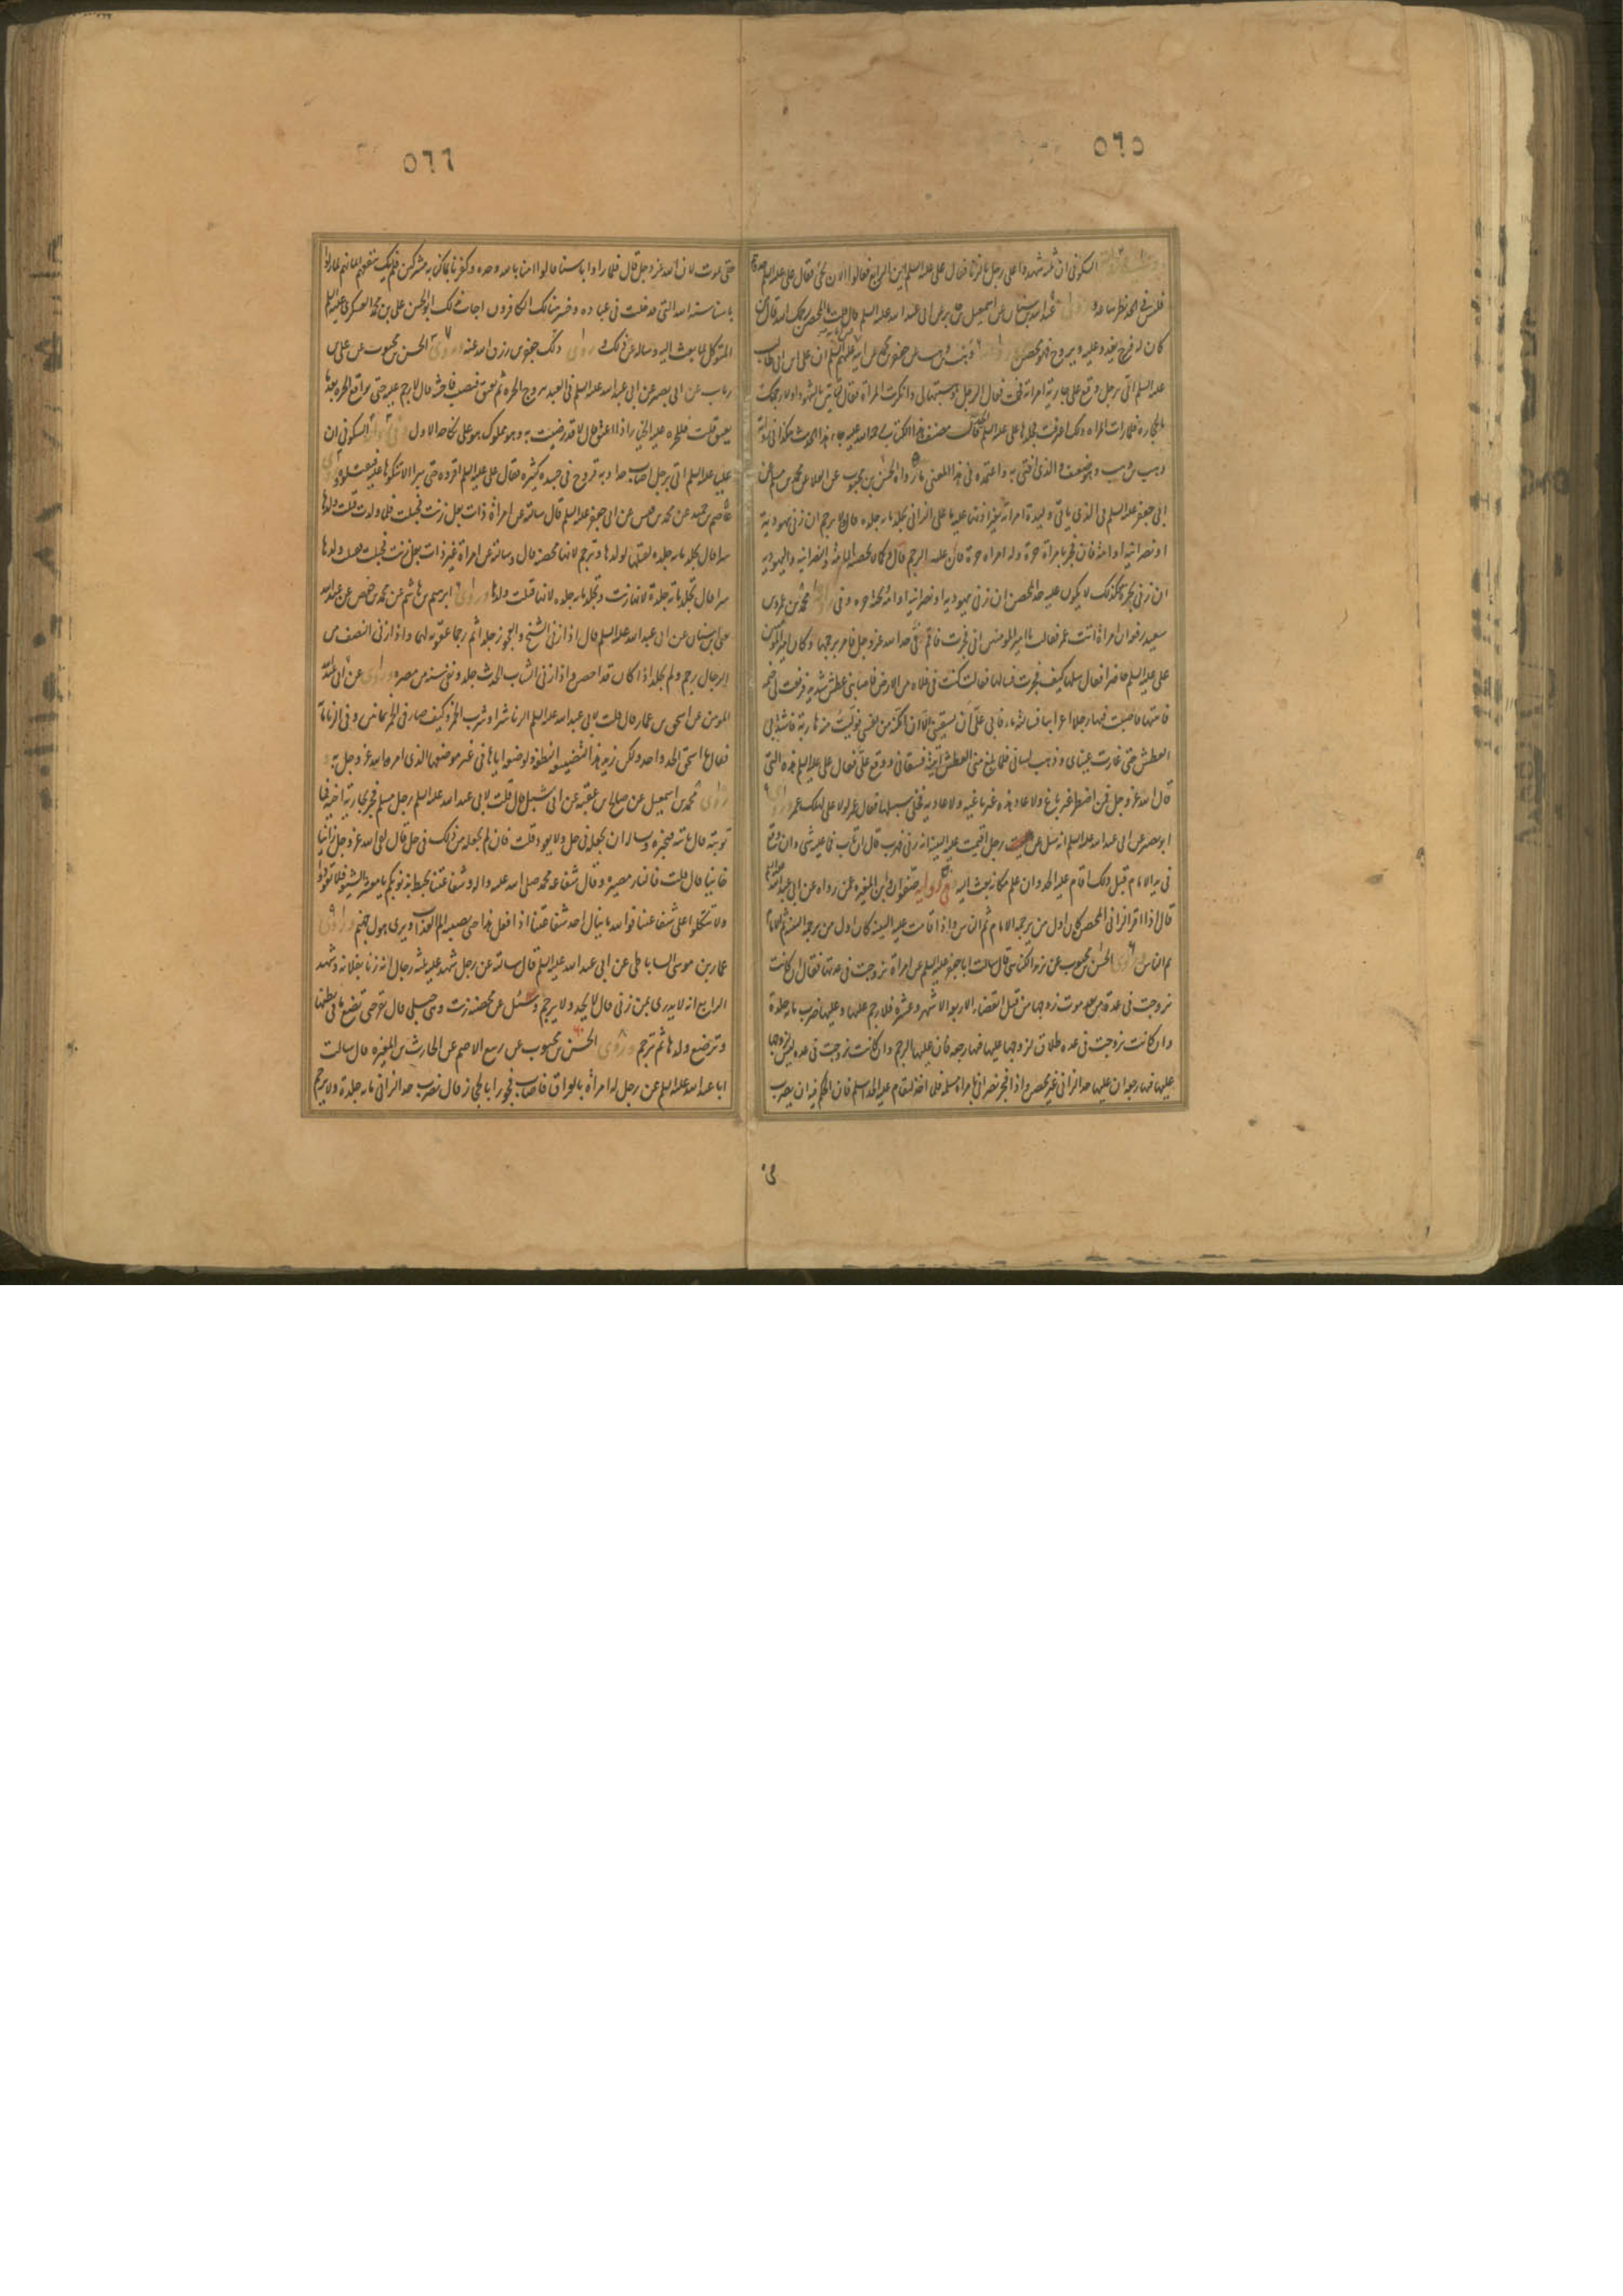 ٥٦٥
السكونى ان ثلثة شهدوا على رجل بالزنا فقال على عليه السلم اين الرابع فقالوا الان يجئ فقال على عليه السلم حدوهم
فليس فى الحد نظر ساعة و عبد الله بن سنان عن اسمعيل بن جابر عن ابى عبد الله عليه السلم قال قلت ما المحصن رحمك الله قال من
كان له فرج يغدو عليه و يروح فهو محصن وهب بن وهب عن جعفر بن محمد عن ابيه عليهم السلم ان على بن ابى طالب
عليه السلم اتى برجل وقع على جارية امراته فحملت فقال الرجل وهبتها لى و انكرت المراة فقال لتاتينى بالشهود او لارجمنك
بالحجارة فلما رات المراة ذلك اعترفت فجلدها على عليه السلم قال مصنف هذا الكتاب رحمة الله عليه جاء هذا الحديث هكذا فى رواية
وهب بن وهب و هو ضعيف و الذى افتى به و اعتمده فى هذا المعنى ما رواه الحسن بن محبوب عن العلا عن محمد بن مسلم عن
ابى جعفر عليه السلم فى الذى ياتى وليدة امراته بغير اذنها عليه ما على الزانى يجلد مائة جلدة قال و لا يرجم ان زنى بيهودية
او نصرانية او امة فان فجر بامراة حرة و له امراة حرة فان عليه الرجم قال و كما لا تحصنه الامة و النصرانية و اليهودية
ان زنى بحرة فكذلك لا يكون عليه حد المحصن ان زنى بيهودية او نصرانية او امة و تحته حرة و فى محمد بن عمرو بن
سعيد رفعه ان امراة اتت عمر فقالت يا امير المومنين انى فجرت فاقم فى حد الله عز و جل فامر برجمها و كان امير المومنين
على عليه السلم حاضرا فقال سلها كيف فجرت فسالها فقالت كنت فى فلاة من الارض فاصابنى عطش شديد فرفعت لى خيمة
فاتيتها فاصبت فيها رجلا اعرابيا فسالته ماء فابى على ان يسقينى الا ان امكنه من نفسى فوليت منه هاربة فاشتد بى
العطش حتى غارت عيناى و ذهب لسانى فلما بلغ منى العطش اتيته فسقانى و وقع على فقال على عليه السلم هذه التى
قال الله عز و جل فمن اضطر غير باغ و لا عاد هذه غير باغية و لا عادية فخل سبيلها فقال عمر لولا على لهلك عمر و روى
ابو بصير عن ابى عبد الله عليه السلم انه سئل عن رجل اقيمت عليه البينة انه زنى فهرب قال ان تاب فما عليه شئ و ان وقع
فى يد الامام قبل ذلك اقام عليه الحد و ان علم مكانه بعث اليه و فى رواية صفوان و ابن المغيرة عمن رواه عن ابى عبد الله عليه السلم
قال اذا اقر الزانى المحصن كان اول من يرجمه الامام ثم الناس و اذا قامت عليه البينة كان اول من يرجمه البينة ثم الامام
ثم الناس و روى الحسن بن محبوب عن يزيد الكناسى قال سالت ابا جعفر عليه السلم عن امراة تزوجت فى عدتها فقال ان كانت
تزوجت فى عدة من بعد موت زوجها من قبل انقضاء الاربعة الاشهر و عشرة فلا رجم عليها و عليها ضرب مائة جلدة
و ان كانت تزوجت فى عدة طلاق لزوجها عليها فيها رجعة فان عليها الرجم و ان كانت تزوجت فى عدة ليس لزوجها
عليها فيها رجعة فان عليها حد الزانى غير المحصن و اذا فجر نصرانى بامراة مسلمة فلما اخذ ليقام عليه الحد اسلم فان الحكم فيه ان يضرب
٥٦٦
حتى يموت لان الله عز و جل قال فلما راوا باسنا قالوا امنا بالله وحده و كفرنا بما كنا به مشركين فلم يك ينفعهم ايمانهم لما راوا
باسنا سنة الله التى قد خلت فى عباده و خسر هنالك الكافرون اجاب بذلك ابو الحسن على بن محمد العسكرى عليه السلم
المتوكل لما بعث اليه و ساله عن ذلك و روى ذلك جعفر بن رزق الله عنه و روى الحسن بن محبوب عن على بن
رياب عن ابى بصير عن ابى عبد الله عليه السلم فى العبد يتزوج الحرة ثم يعتق فيصيب فاحشة قال لا رجم عليه حتى يواقع الحرة بعد ما
يعتق قلت فللحرة عليه الخيار اذا اعتق قال لا قد رضيت به و هو مملوك هو على نكاحه الاول و فى رواية السكونى ان
عليا عليه السلم اتى برجل اصاب حدا و به قروح فى جسده كثيرة فقال على عليه السلم اقروه حتى يبرا لا تنكوها عليه فتقتلوه و روى
عاصم بن حميد عن محمد بن قيس عن ابى جعفر عليه السلم قال سالته عن امراة ذات بعل زنت فحبلت فلما ولدت قتلت ولدها
سرا قال تجلد مائة جلدة لقتلها ولدها و ترجم لانها محصنة قال و سالته عن امراة غير ذات بعل زنت فحبلت فقتلت ولدها
سرا قال تجلد مائة جلدة لانها زنت و تجلد مائة جلدة لانها قتلت ولدها و روى ابرهيم بن هاشم عن محمد بن حفص عن عبد الله
يعنى ابن سنان عن ابى عبد الله عليه السلم قال اذا زنى الشيخ و العجوز جلدا ثم رجما عقوبة لهما و اذا زنى النصف من
الرجال رجم و لم يجلد اذا كان قد احصن و اذا زنى الشاب الحدث جلد و نفى سنة من مصره و روى عن ابى عبد الله
المومن عن اسحق بن عمار قال قلت لابى عبد الله عليه السلم الزنا شر او شرب الخمر و كيف صار فى الخمر ثمانين و فى الزنا مائة
فقال يا اسحق الحد واحد و لكن زيد هذا لتضييعه النطفة و لوضعه اياها فى غير موضعها الذى امر الله عز و جل به
و روى محمد بن اسمعيل عن صالح بن عقبة عن ابى شبل قال قلت لابى عبد الله عليه السلم رجل مسلم فجر بجارية اخيه فما
توبته قال ياتيه فيخبره و يساله ان يجعله فى حل و لا يعود قلت فان لم يجعله من ذلك فى حل قال يلقى الله عز و جل زانيا
خائنا قال قلت فالنار مصيره قال شفاعة محمد صلى الله عليه و اله و شفاعتنا تحيط بذنوبكم يا معشر الشيعة فلا تعودوا
و لا تتكلوا على شفاعتنا فوالله ما ينال احد شفاعتنا اذا فعل هذا حتى يصيبه الم العذاب و يرى هول جهنم و روى
عمار بن موسى الساباطى عن ابى عبد الله عليه السلم قال سالته عن رجل شهد عليه ثلثة رجال انه زنا بفلانة و شهد
الرابع انه لا يدرى بمن زنى قال لا يحد و لا يرجم و سئل عن محصنة زنت و هى حبلى قال تقر حتى تضع ما فى بطنها
و ترضع ولدها ثم ترجم و روى الحسن بن محبوب عن ربيع الاصم عن الحارث بن المغيرة قال سالت
ابا عبد الله عليه السلم عن رجل له امراة بالعراق فاصاب فجورا بالحجاز فقال يضرب حد الزانى مائة جلدة و لا يرجم